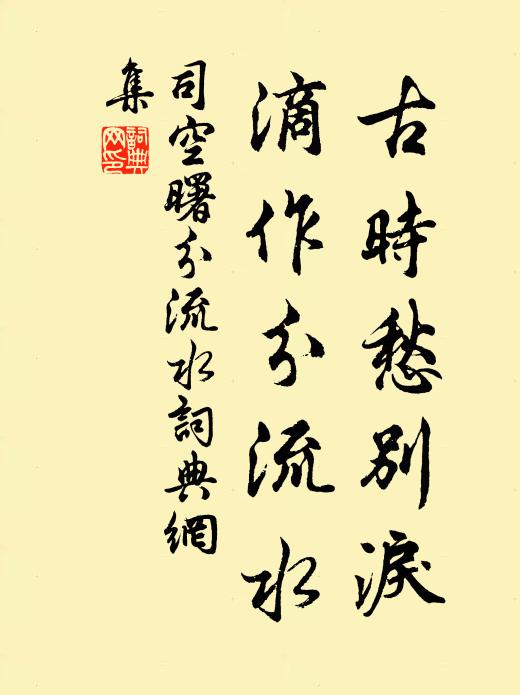 古時愁別淚
滴作分流水
司空曙分流水詞典網
集
詞典
网印